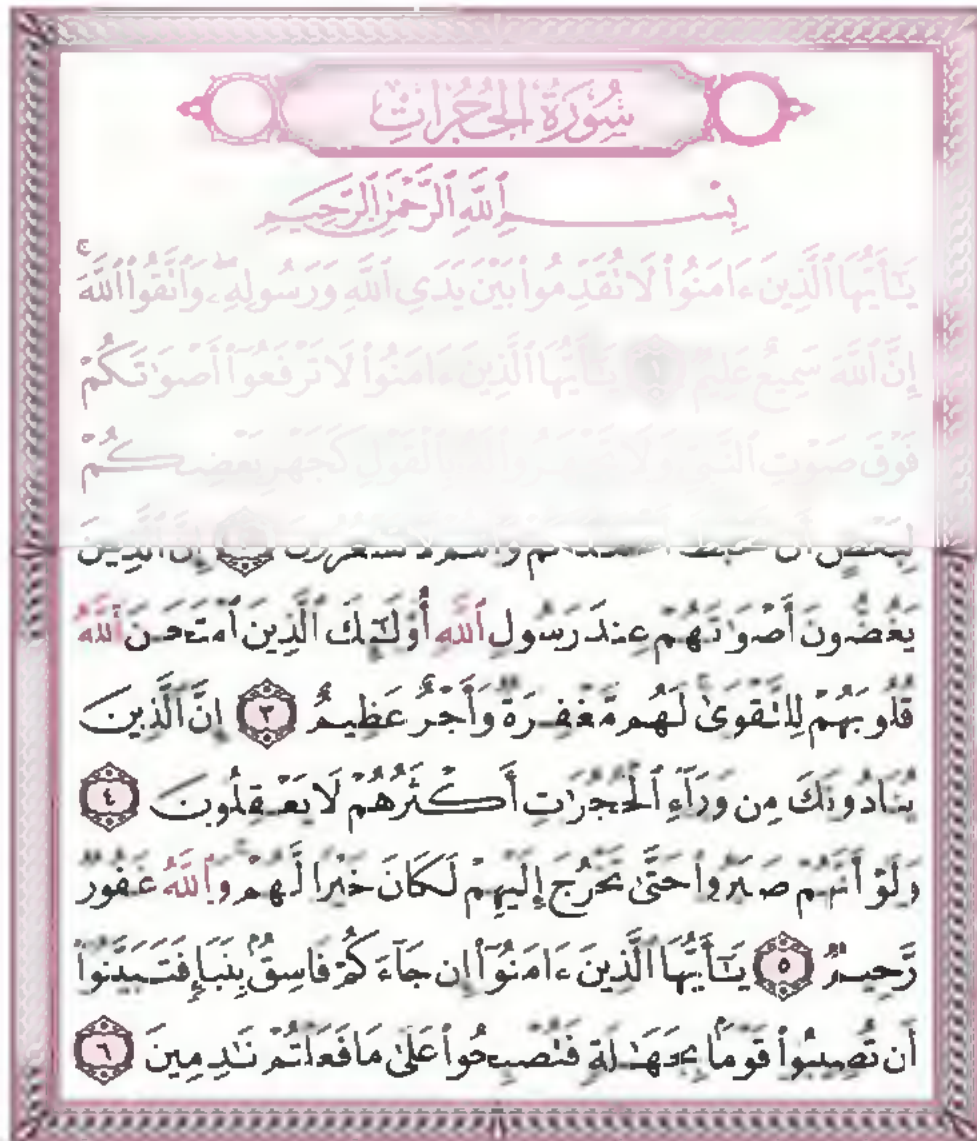 سُورَةُ الحُجُرَاتِ
بِسْمِ ٱللَّهِ ٱلرَّحْمَٰنِ ٱلرَّحِيمِ
يَٰٓأَيُّهَا ٱلَّذِينَ ءَامَنُوا۟ لَا تُقَدِّمُوا۟ بَيْنَ يَدَىِ ٱللَّهِ وَرَسُولِهِۦ ۖ وَٱتَّقُوا۟ ٱللَّهَ ۚ
إِنَّ ٱللَّهَ سَمِيعٌ عَلِيمٌ ١ يَٰٓأَيُّهَا ٱلَّذِينَ ءَامَنُوا۟ لَا تَرْفَعُوٓا۟ أَصْوَٰتَكُمْ
فَوْقَ صَوْتِ ٱلنَّبِىِّ وَلَا تَجْهَرُوا۟ لَهُۥ بِٱلْقَوْلِ كَجَهْرِ بَعْضِكُمْ
لِبَعْضٍ أَن تَحْبَطَ أَعْمَٰلُكُمْ وَأَنتُمْ لَا تَشْعُرُونَ ٢ إِنَّ ٱلَّذِينَ
يَغُضُّونَ أَصْوَٰتَهُمْ عِندَ رَسُولِ ٱللَّهِ أُو۟لَٰٓئِكَ ٱلَّذِينَ ٱمْتَحَنَ ٱللَّهُ
قُلُوبَهُمْ لِلتَّقْوَىٰ ۚ لَهُم مَّغْفِرَةٌ وَأَجْرٌ عَظِيمٌ ٣ إِنَّ ٱلَّذِينَ
يُنَادُونَكَ مِن وَرَآءِ ٱلْحُجُرَٰتِ أَكْثَرُهُمْ لَا يَعْقِلُونَ ٤
وَلَوْ أَنَّهُمْ صَبَرُوا۟ حَتَّىٰ تَخْرُجَ إِلَيْهِمْ لَكَانَ خَيْرًا لَّهُمْ ۚ وَٱللَّهُ غَفُورٌ
رَّحِيمٌ ٥ يَٰٓأَيُّهَا ٱلَّذِينَ ءَامَنُوٓا۟ إِن جَآءَكُمْ فَاسِقٌۢ بِنَبَإٍ فَتَبَيَّنُوٓا۟
أَن تُصِيبُوا۟ قَوْمًۢا بِجَهَٰلَةٍ فَتُصْبِحُوا۟ عَلَىٰ مَا فَعَلْتُمْ نَٰدِمِينَ ٦